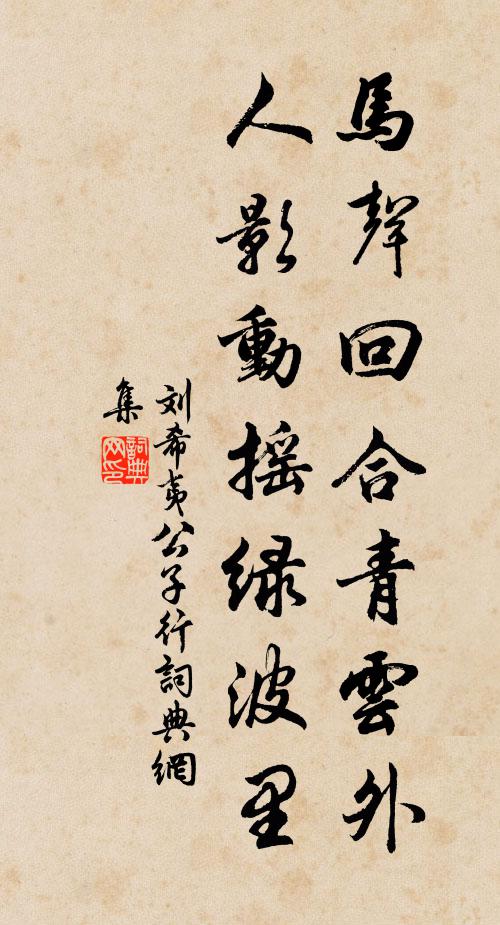 馬聲回合青雲外
人影動摇緑波里
刘希夷公子行詞典網
集
詞典網印